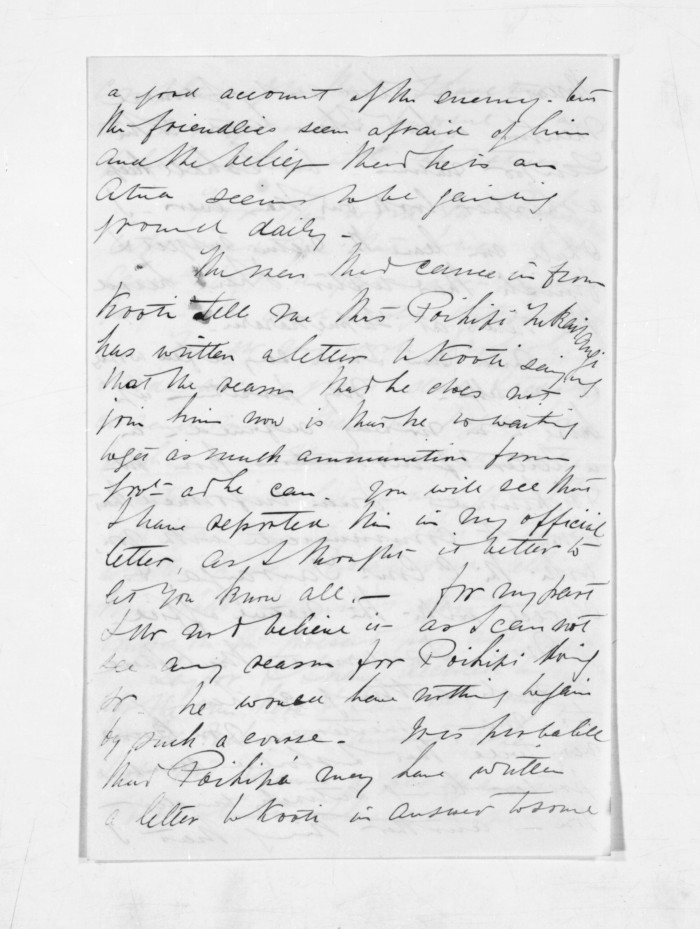 a good account of the enemy. but
the friendlies seem afraid of him
and the belief that he is an
Atua seems to be gaining
ground daily -
The men that came in from
Kooti tell me this Poihipi Tukairangi
has written a letter to Kooti saying
that the reason that he does not
join him now is that he is waiting
to get as much ammunition from
Govt as he can. You will see that
I have reported this in my official
letter, as I thought it better to
let you know all. - for my part
I do not believe it as I can not
see any reason for Poihipi doing
so. he would have nothing to gain
by such a course - It is probable
that Poihipi may have written
a letter to Kooti in answer to some